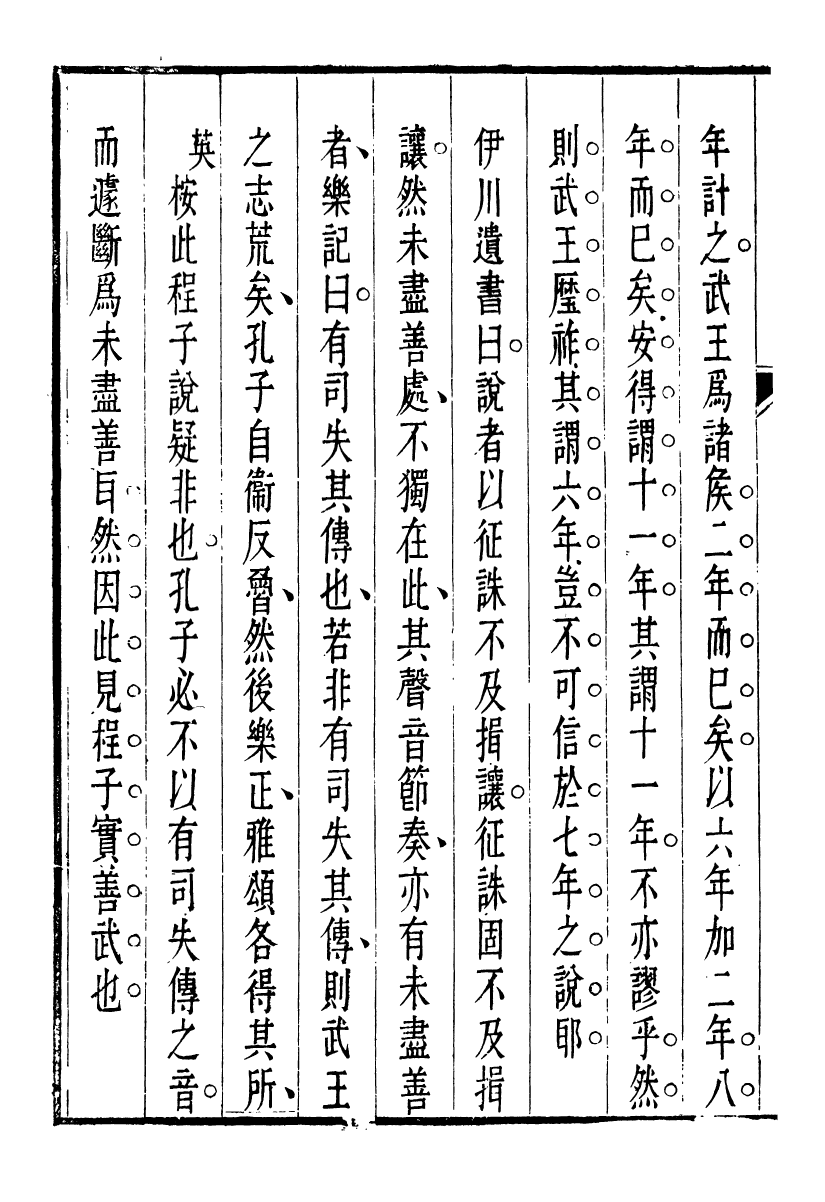 年計之。武王爲諸侯。二。年。而。已。矣。以六年加二年。八。
年。而。已。矣。安。得。謂。十。一。年。其謂十一年。不亦謬乎。然。
則。武。王。歷。祚。其。謂。六。年。豈。不。可。信。於。七。年。之。說。耶。
伊川遺書曰。說者以征誅不及揖讓。征誅固不及揖
讓。然未盡善處、不獨在此、其聲音節奏、亦有未盡善
者、樂記曰。有司失其傳也、若非有司失其傳、則武王
之志荒矣、孔子自衞反魯、然後樂正、雅頌各得其所、
英桉此程子說疑非也。孔子必不以有司失傳之音。
而遽斷爲未盡善。自。然。因。此。見。程。子。實。善。武。也。